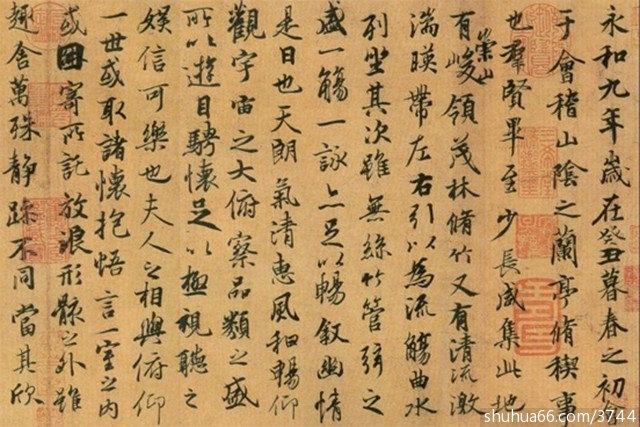 永和九年歲在癸丑暮春之初會
于會稽山陰之蘭亭脩稧事
也羣賢畢至少長咸集此地
有崇山峻領茂林脩竹又有清流激
湍暎帶左右引以為流觴曲水
列坐其次雖無絲竹管弦之
盛一觴一詠亦足以暢敘幽情
是日也天朗氣清惠風和暢仰
觀宇宙之大俯察品類之盛
所以遊目騁懷足以極視聽之
娛信可樂也夫人之相與俯仰
一世或取諸懷抱悟言一室之內
或因寄所託放浪形骸之外雖
趣舍萬殊靜躁不同當其欣
shuhua66.com/3744